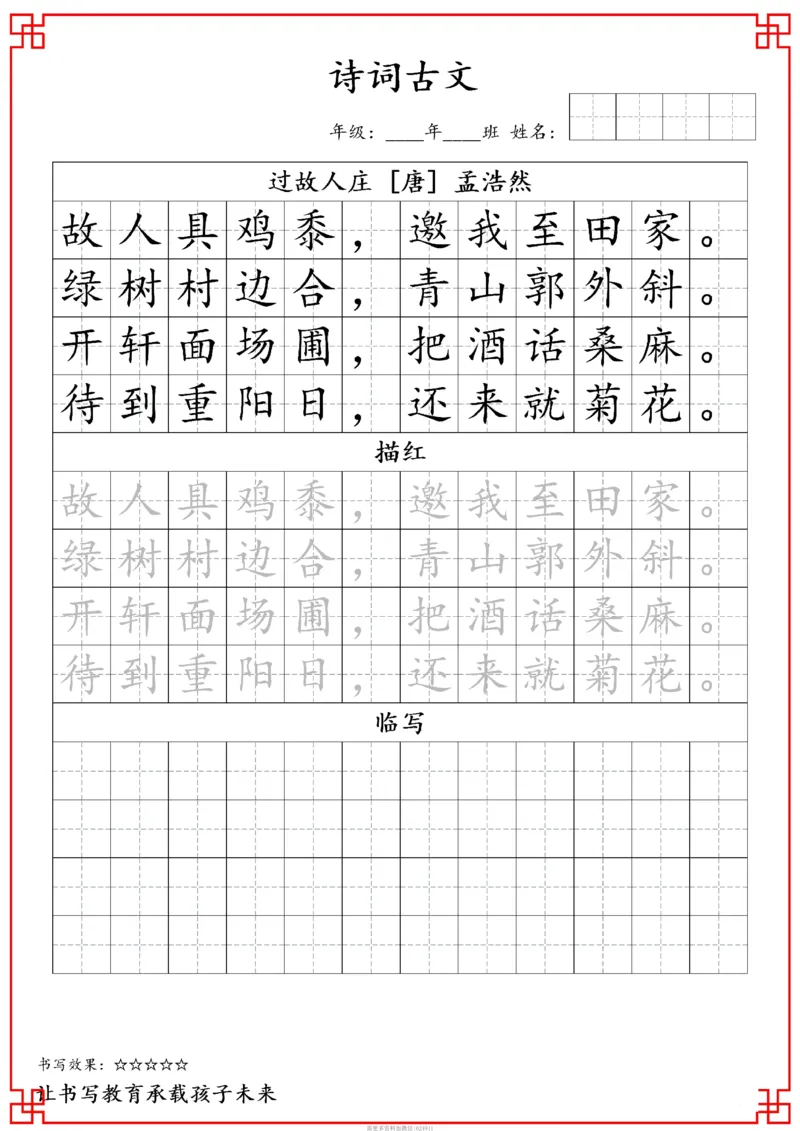 诗词古文
年级：____年____班 姓名：
过故人庄 [唐] 孟浩然
故人具鸡黍，邀我至田家。
绿树村边合，青山郭外斜。
开轩面场圃，把酒话桑麻。
待到重阳日，还来就菊花。
描红
故人具鸡黍，邀我至田家。
绿树村边合，青山郭外斜。
开轩面场圃，把酒话桑麻。
待到重阳日，还来就菊花。
临写
书写效果：☆☆☆☆☆
让书写教育承载孩子未来